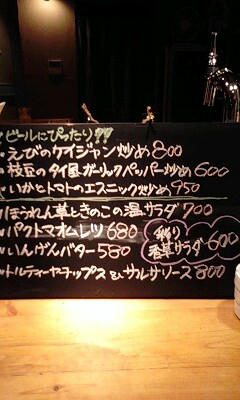 ビールにぴったり!!
・えびのケイジャン炒め 800
・枝豆のタイ風ガーリックペッパー炒め 600
・いかとトマトのエスニック炒め 950
・ほうれん草ときのこの温サラダ 700
・パクトマオムレツ 680
・いんげんバター 580
彩り
香草サラダ 600
・トルティーヤチップス &サルサソース 800